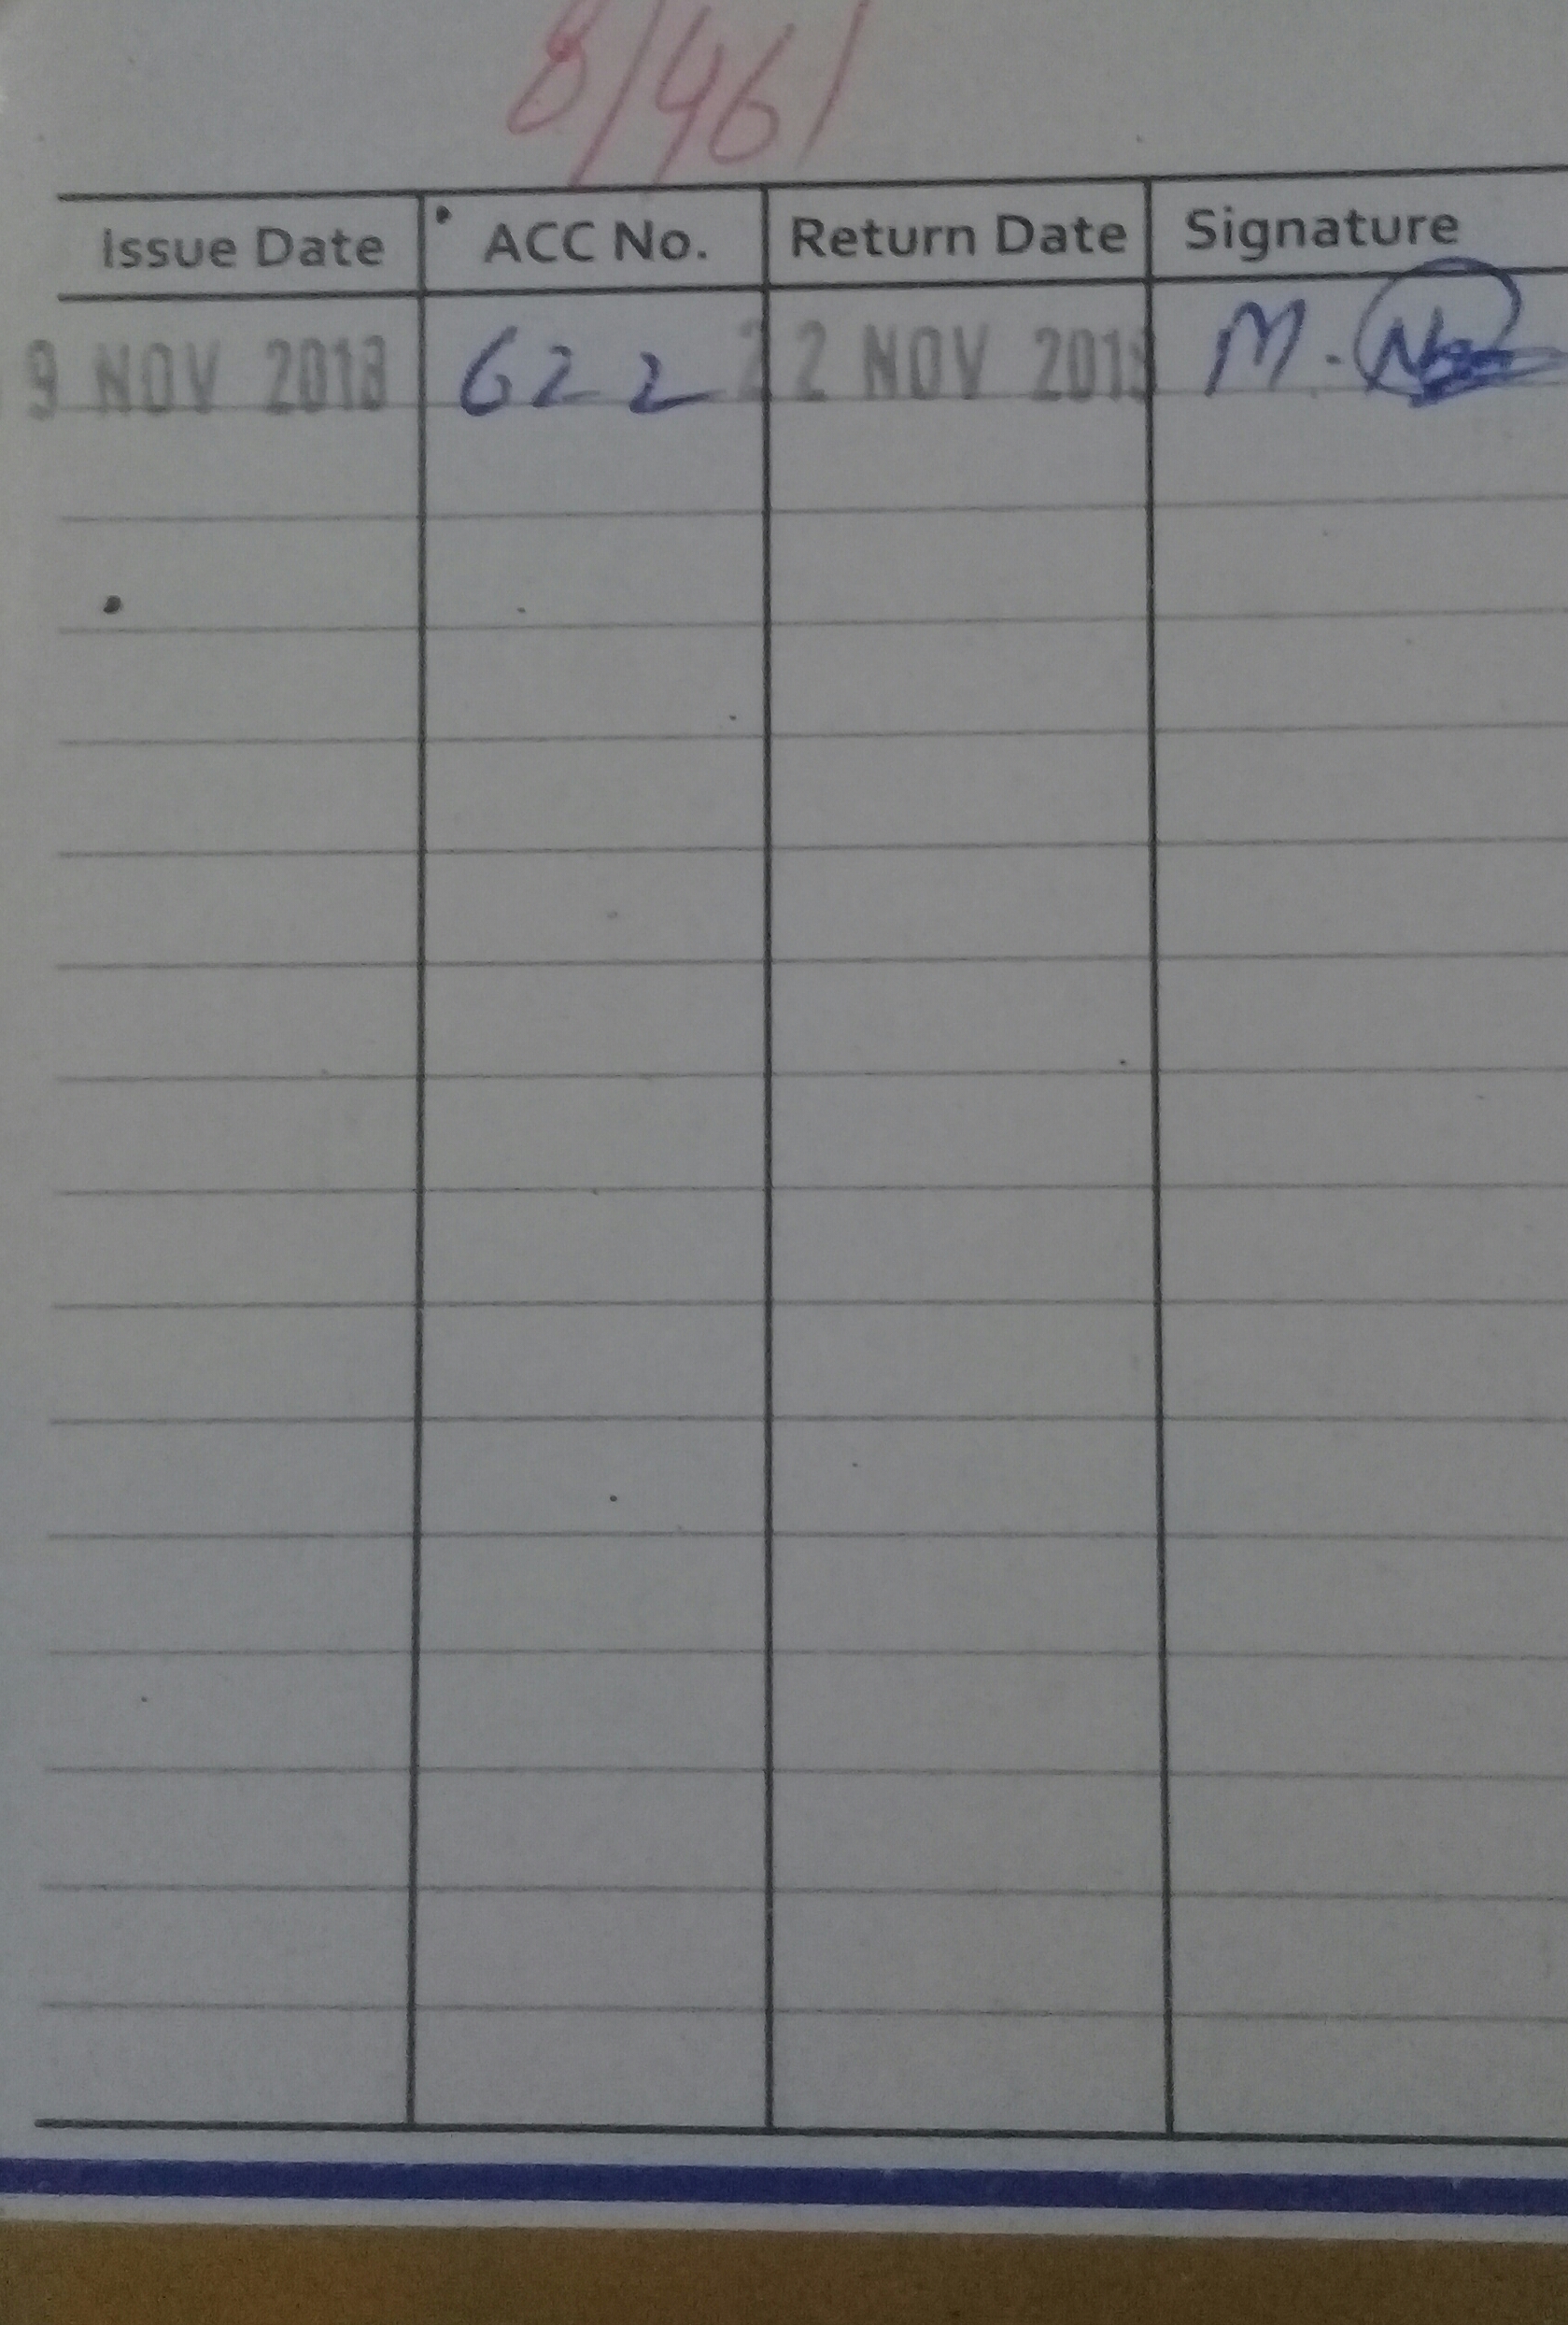 8/461
Issue Date ACC No. Return Date Signature
9 NOV 2018 622 22 NOV 2018 M.